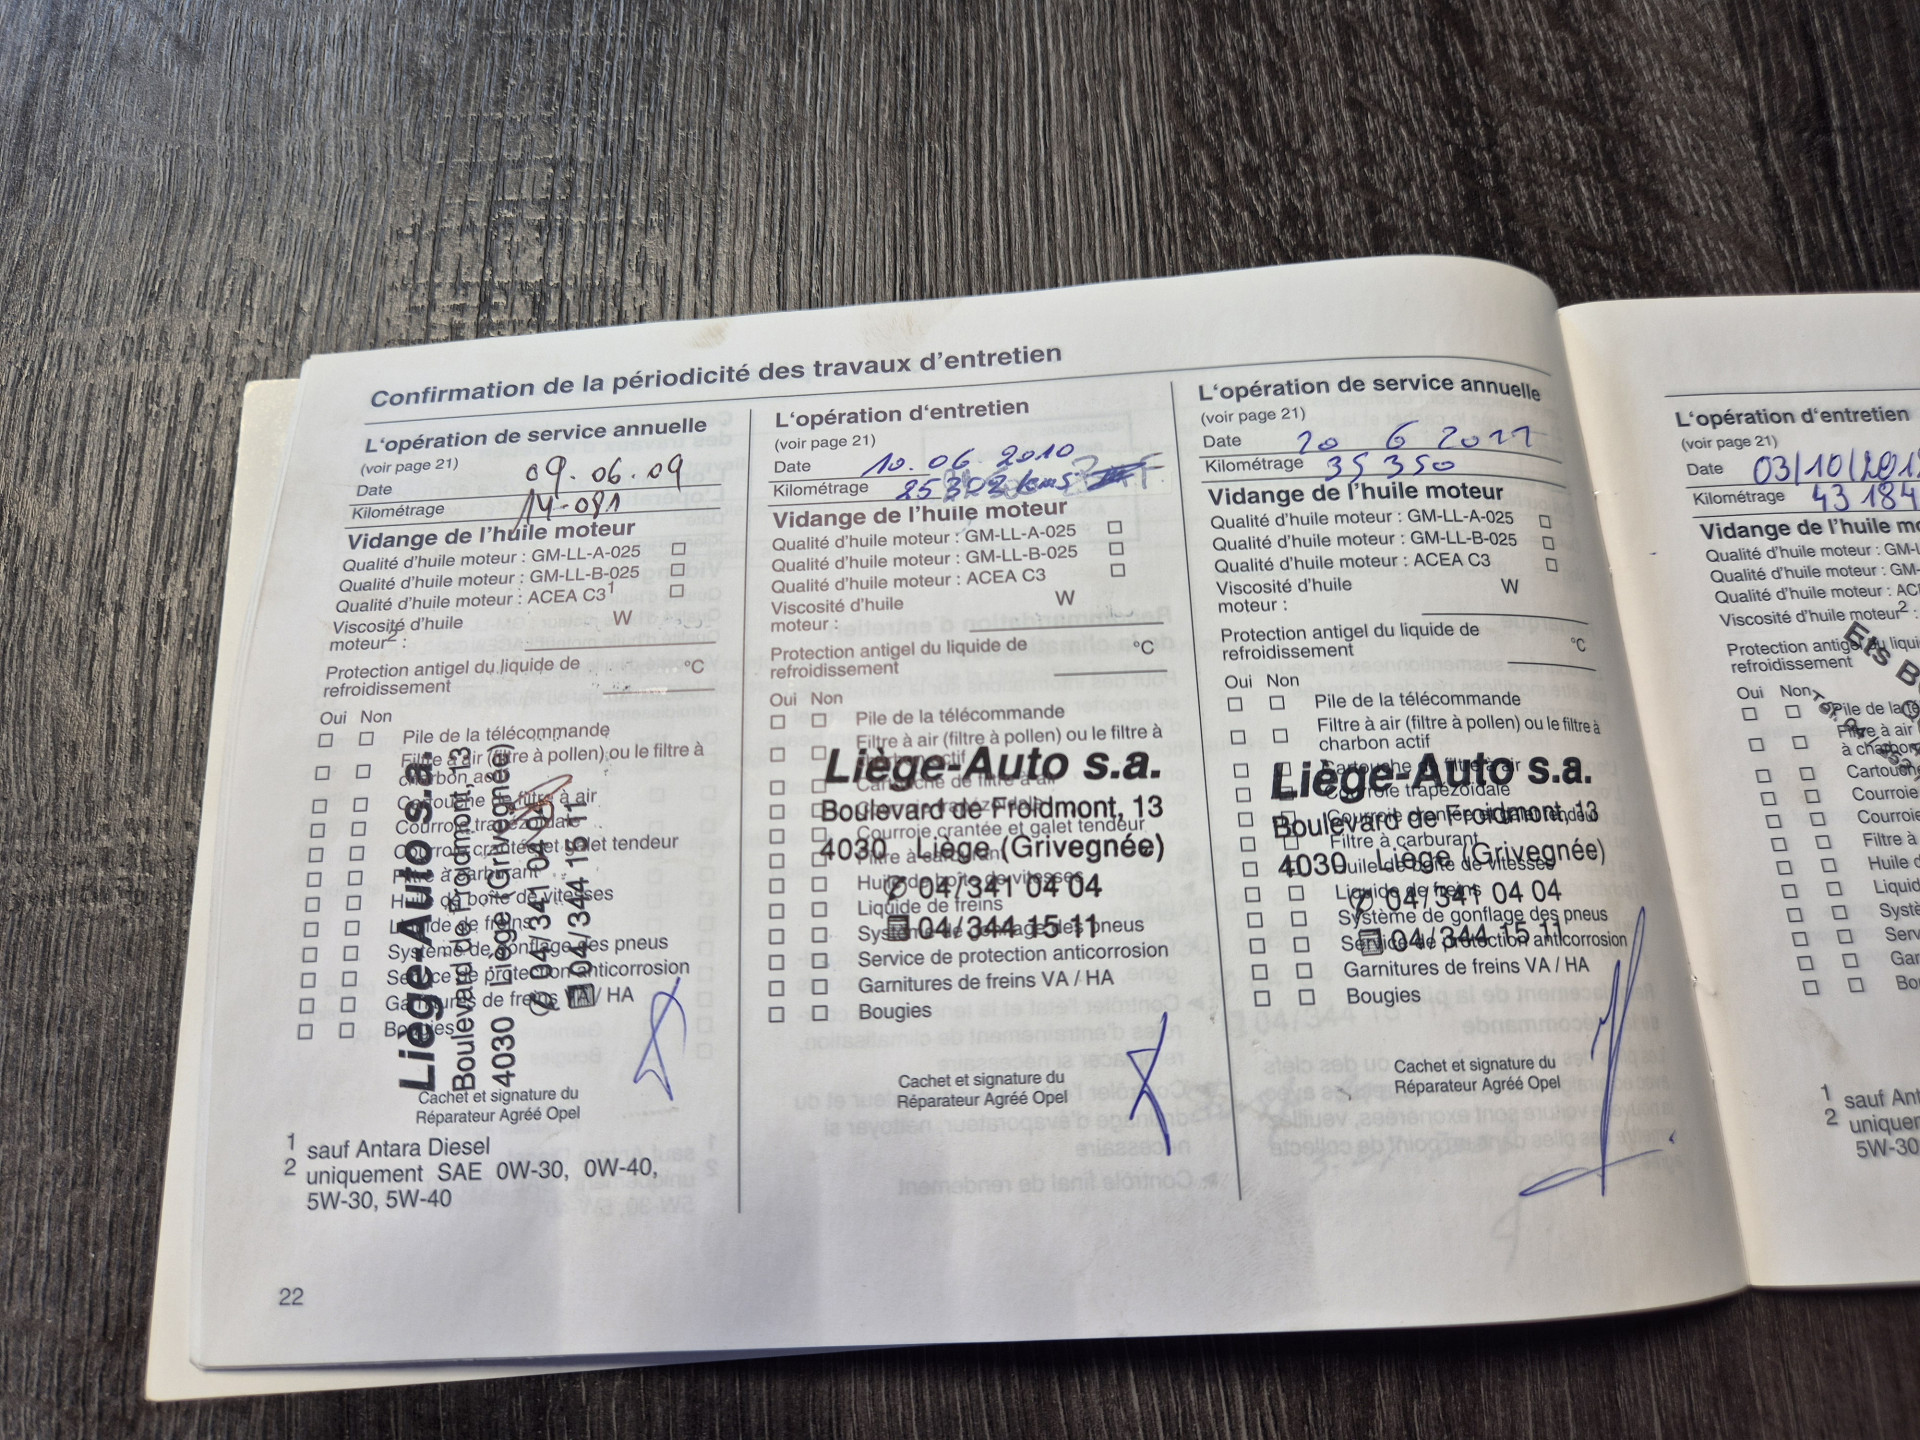 Confirmation de la périodicité des travaux d'entretien
L'opération de service annuelle
(voir page 21)
Date 09.06.09
Kilométrage 14-081
Vidange de l'huile moteur
Qualité d'huile moteur : GM-LL-A-025
Qualité d'huile moteur : GM-LL-B-025
Qualité d'huile moteur : ACEA C3 1
Viscosité d'huile W
moteur 2 :
Protection antigel du liquide de °C
refroidissement
Oui Non
Pile de la télécommande
Filtre à air (filtre à pollen) ou le filtre à
charbon actif
Cartouche de filtre à air
Courroie trapézoïdale
Courroie crantée et galet tendeur
Filtre à carburant
Huile de boîte de vitesses
Liquide de freins
Système de gonflage des pneus
Service de protection anticorrosion
Garnitures de freins VA / HA
Bougies
Liège-Auto s.a.
Boulevard de Froidmont, 13
4030 Liège (Grivegnée)
04/341 04 04
04/344 15 11
Cachet et signature du
Réparateur Agréé Opel
1 sauf Antara Diesel
2 uniquement SAE 0W-30, 0W-40,
5W-30, 5W-40
22
L'opération d'entretien
(voir page 21)
Date 10.06.2010
Kilométrage 25 303 kms
Vidange de l'huile moteur
Qualité d'huile moteur : GM-LL-A-025
Qualité d'huile moteur : GM-LL-B-025
Qualité d'huile moteur : ACEA C3
Viscosité d'huile W
moteur :
Protection antigel du liquide de °C
refroidissement
Oui Non
Pile de la télécommande
Filtre à air (filtre à pollen) ou le filtre à
actif
Cartouche de filtre à air
Courroie trapézoïdale
Courroie crantée et galet tendeur
Filtre à carburant
Huile de boîte de vitesses
Liquide de freins
Système de gonflage des pneus
Service de protection anticorrosion
Garnitures de freins VA / HA
Bougies
Liège-Auto s.a.
Boulevard de Froidmont, 13
4030 Liège (Grivegnée)
04/341 04 04
04/344 15 11
Cachet et signature du
Réparateur Agréé Opel
L'opération de service annuelle
(voir page 21)
Date 20 6 2011
Kilométrage 35 350
Vidange de l'huile moteur
Qualité d'huile moteur : GM-LL-A-025
Qualité d'huile moteur : GM-LL-B-025
Qualité d'huile moteur : ACEA C3
Viscosité d'huile W
moteur :
Protection antigel du liquide de °C
refroidissement
Oui Non
Pile de la télécommande
Filtre à air (filtre à pollen) ou le filtre à
charbon actif
Cartouche de filtre à air
Courroie trapézoïdale
Courroie crantée et galet tendeur
Filtre à carburant
Huile de boîte de vitesses
Liquide de freins
Système de gonflage des pneus
Service de protection anticorrosion
Garnitures de freins VA / HA
Bougies
Liège-Auto s.a.
Boulevard de Froidmont, 13
4030 Liège (Grivegnée)
04/341 04 04
04/344 15 11
Cachet et signature du
Réparateur Agréé Opel
L'opération d'entretien
(voir page 21)
Date 03/10/201
Kilométrage 43 184
Vidange de l'huile mo
Qualité d'huile moteur : GM-L
Qualité d'huile moteur : GM-
Qualité d'huile moteur : AC
Viscosité d'huile moteur 2 :
Protection antigel du liqui
refroidissement
Oui Non
Pile de la té
Filtre à air (
à charbon
Cartouche
Courroie
Courroie
Filtre à
Huile d
Liquid
Systè
Serv
Gar
Bo
Ets B
1 sauf Ant
2 uniquem
5W-30